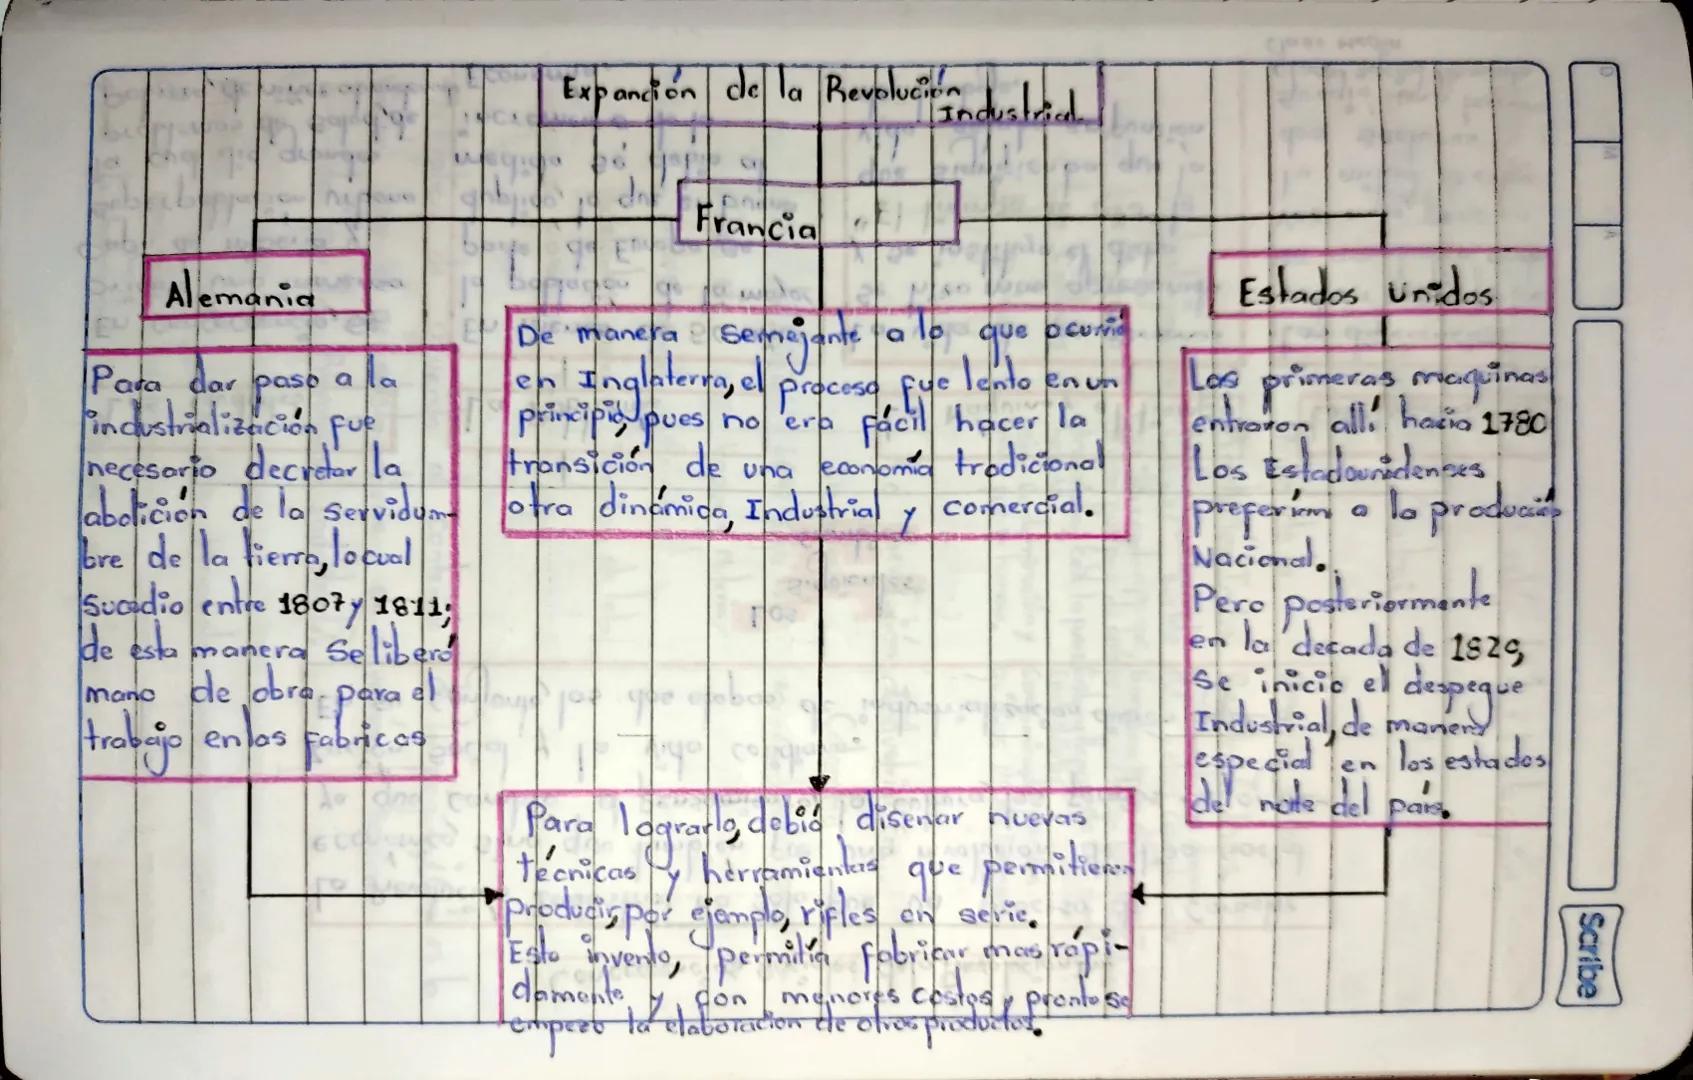 Expanción de la Revolución
Industrial
Francia
Alemania
Estados Unidos.
Para dar paso a la
industrialización fue
necesario decretar la
abolición de la servidum-
bre de la tierra, lo cual
Sucedio entre 1807 y 1811;
de esta manera Se liberó
mano de obra para el
trabajo en las fabricas
De manera semejante a lo que ocurrio
en Inglaterra, el proceso fue lento en un
principio, pues no era fácil hacer la
transición de una economía tradicional
otra dinámica, Industrial y comercial.
Las primeras maquinas
entraron allí hacia 1780
Los Estadounidenses
a la producción
Nacional.
Pero posteriormente
en la decada de
Se inicio el despegue
Industrial, de manera
especial en los estados
del norte del país.
Para lograrlo, debió diseñar nuevas
técnicas y herramientas que permitieron
producir, por ejemplo, rifles en serie.
Esto invento, permitía fabricar mas rápi-
damente y con menores costos y pronto se
empezo la elaboración de otros productos.
Scribe